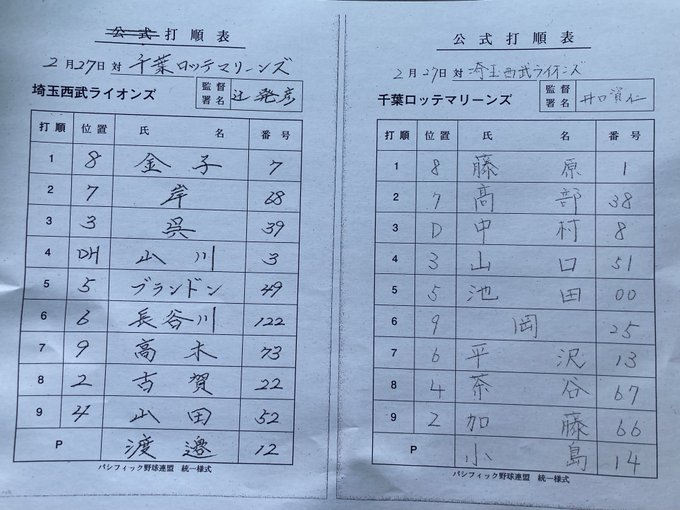 公式打順表
2月27日 対 千葉ロッテマリーンズ
埼玉西武ライオンズ 監督署名 辻発彦
打順 位置 氏名 番号
1 8 金子 7
2 7 岸 68
3 3 呉 39
4 DH 山川 3
5 5 ブランドン 49
6 6 長谷川 122
7 9 高木 73
8 2 古賀 22
9 4 山田 52
P 渡邉 12
パシフィック野球連盟 統一様式
公式打順表
2月27日 対 埼玉西武ライオンズ
千葉ロッテマリーンズ 監督署名 井口資仁
打順 位置 氏名 番号
1 8 藤原 1
2 7 髙部 38
3 D 中村 8
4 3 山口 51
5 5 池田 00
6 9 岡 25
7 6 平沢 13
8 4 茶谷 67
9 2 加藤 66
P 小島 14
パシフィック野球連盟 統一様式